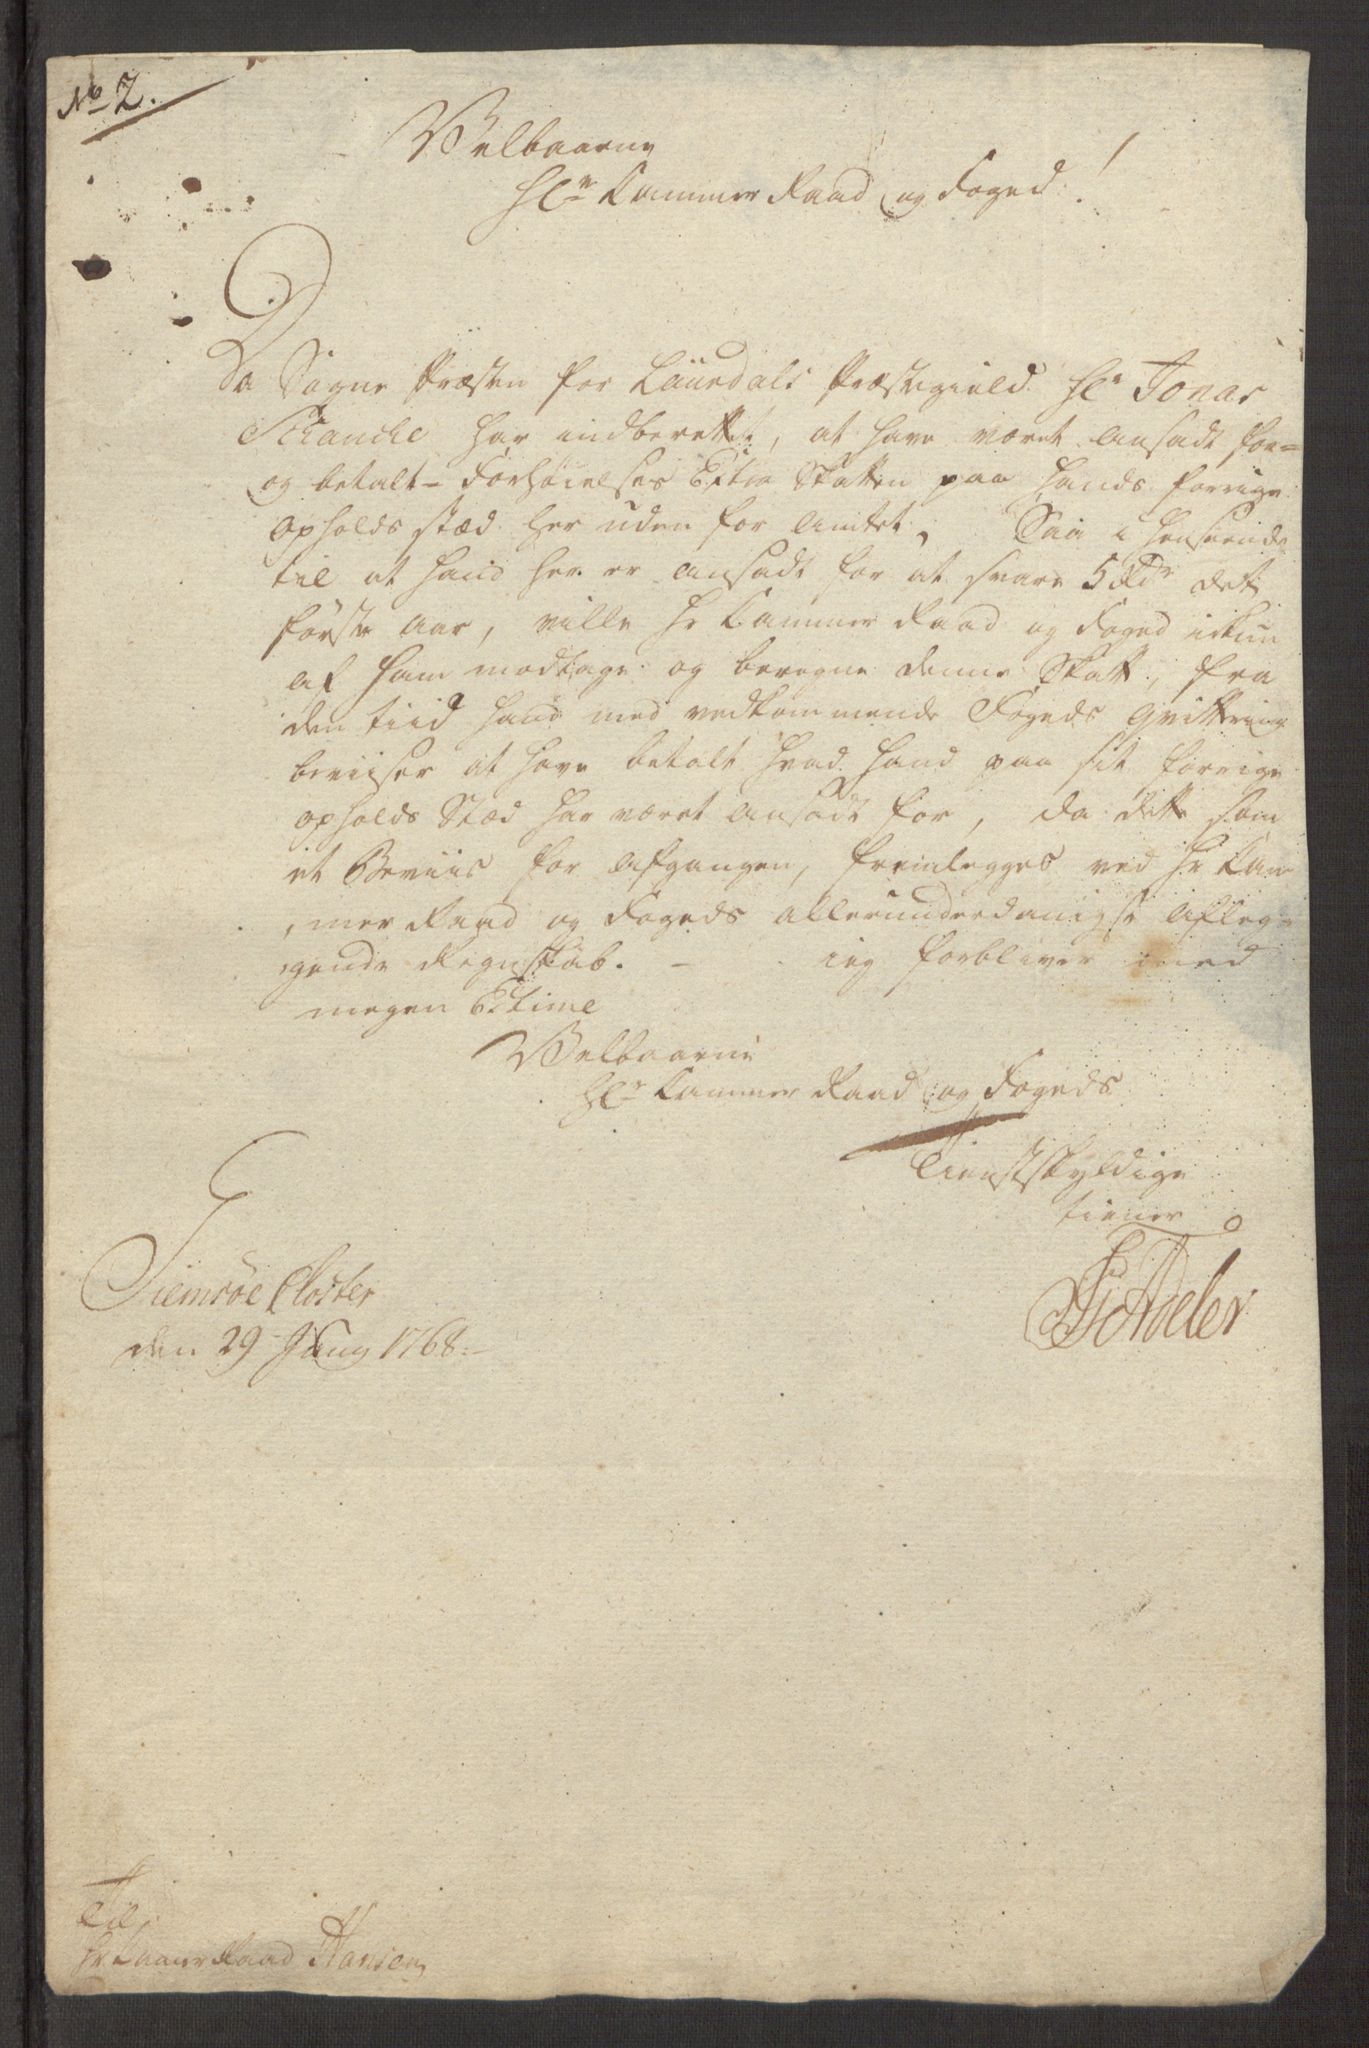 No 2.
Velbaarne
Hr. Cammer Raad og Foged!
Da Sogne Præsten for Laurdals Præstegield Hr Jonas
Schanche har indberettet, at have været ansadt for-
og betalt Forhøielses Extra Skatten paa hands forrige
opholds stæd her uden for Amtet, Saa i henseende
til at hand her er ansadt for at svare 5 Rdr det
første aar, ville Hr Cammer Raad og Foged ickun
af ham modtage og beregne denne Skatt, fra
den tiid hand med vedkommende Fogeds qvittering
beviiser at have betalt hvad hand paa sit forrige
opholds Stæd har været ansadt for, da dette som
et Beviis for Afgangen, fremlegges ved Hr Cam
mer Raad og Fogeds allerunderdanigst afleg-
gende Regnskab. - ieg forbliver med
megen Estime
Velbaarne
Hr Cammer Raad og Fogeds
tienstskyldige
tiener
Adeler
Giemsøe Closter
den 29 Aug 1768.
Til
Hr Cammer Raad Hansen